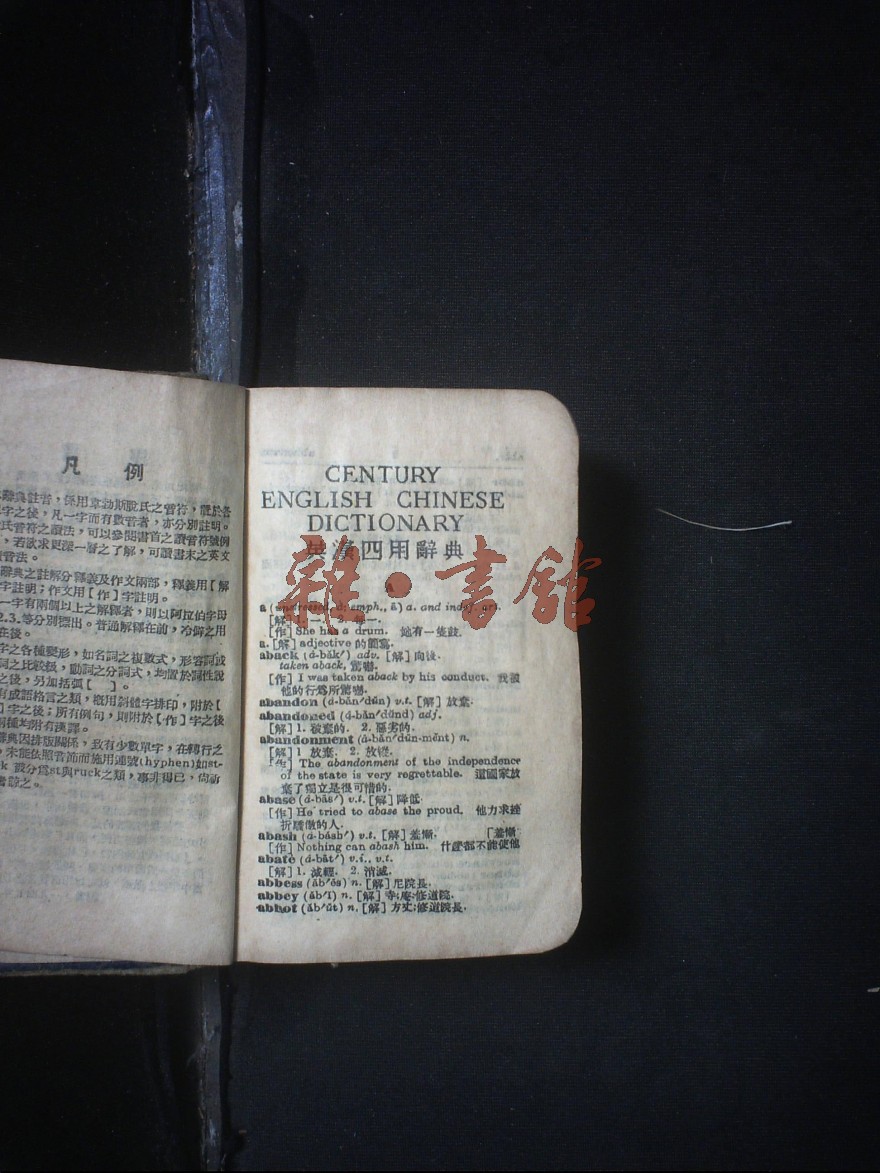 凡 例
辭典註音,係用韋勃斯脫氏之音符,置於各
字之後,凡一字而有數音者,亦分別註明。
氏音符之讀法,可以參閱書首之讀音符號例
,若欲求更深一層之了解,可讀書末之英文
音法。
辭典之註解分釋義及作文兩部,釋義用【解
字註明;作文用【作】字註明。
一字有兩個以上之解釋者,則以阿拉伯字母
2.3.等分別標出。普通解釋在前,冷僻之用
在後。
字之各種變形,如名詞之複數式,形容詞或
詞之比較級,動詞之分詞式,均置於詞性說
之後,另加括弧【 】。
有成語格言之類,概用斜體字排印,附於【
字之後;所有例句,則附於【作】字之後
兩種均附有漢譯。
辭典因排版關係,致有少數單字,在轉行之
,未能依照音節而施用連號(hyphen)如st-
ck 設分爲st與ruck之類,事非得已,尚祈
諒之。
CENTURY
ENGLISH CHINESE
DICTIONARY
英漢四用辭典
雜·書館
a. and indef. art.
[解] 1. 一.
[作] She has a drum. 她有一隻鼓.
a. [解] adjective 的簡寫.
aback (á-băk′) adv. [解] 向後.
taken aback, 驚嚇.
[作] I was taken aback by his conduct. 我被
他的行爲所驚嚇.
abandon (á-băn′dŭn) v.t. [解] 放棄.
abandoned (á-băn′dŭnd) adj.
[解] 1. 被棄的. 2. 惡劣的.
abandonment (á-băn′dŭn-mĕnt) n.
[解] 1. 放棄. 2. 放縱.
[作] The abandonment of the independence
of the state is very regrettable. 這國家放
棄了獨立是很可惜的.
abase (á-bās′) v.t. [解] 降低.
[作] He tried to abase the proud. 他力求挫
折驕傲的人.
abash (á-băsh′) v.t. [解] 羞慚. 「羞慚
[作] Nothing can abash him. 什麼都不能使他
abate (á-bāt′) v.i., v.t.
[解] 1. 減輕. 2. 消滅.
abbess (ăb′ĕs) n. [解] 尼院長.
abbey (ăb′ĭ) n. [解] 寺;庵;修道院.
abbot (ăb′ŭt) n. [解] 方丈;修道院長.